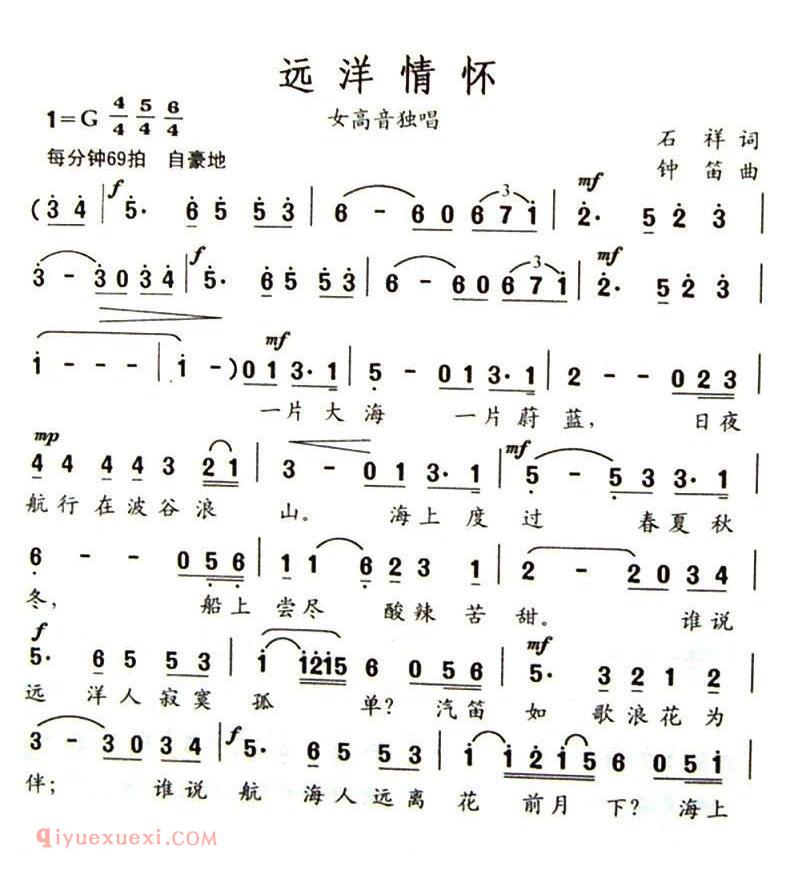 远洋情怀
女高音独唱
1=G 4/4 5/4 6/4
石祥词
每分钟69拍 自豪地
钟笛曲
f mf
( 3 4 | 5· 6 5 5 3 | 6 - 6 0 6 7 1 | 2· 5 2 3 |
f mf
3 - 3 0 3 4 | 5· 6 5 5 3 | 6 - 6 0 6 7 1 | 2· 5 2 3 |
mf
1 - - - | 1 - ) 0 1 3· 1 | 5 - 0 1 3· 1 | 2 - - 0 2 3 |
一片大海 一片蔚蓝, 日夜
mp mf
4 4 4 4 3 2 1 | 3 - 0 1 3· 1 | 5 - 5 3 3· 1 |
航行在波谷浪 山。 海上度过 春夏秋
6 - - 0 5 6 | 1 1 6 2 3 1 | 2 - 2 0 3 4 |
冬, 船上尝尽 酸辣苦甜。 谁说
f mf
5· 6 5 5 3 | 1 1 2 1 5 6 0 5 6 | 5· 3 2 1 2 |
远洋人寂寞孤 单? 汽笛如歌浪花为
f
3 - 3 0 3 4 | 5· 6 5 5 3 | 1 1 2 1 5 6 0 5 1 |
伴; 谁说航海人远离花前月下? 海上
qiyuexuexi.COM